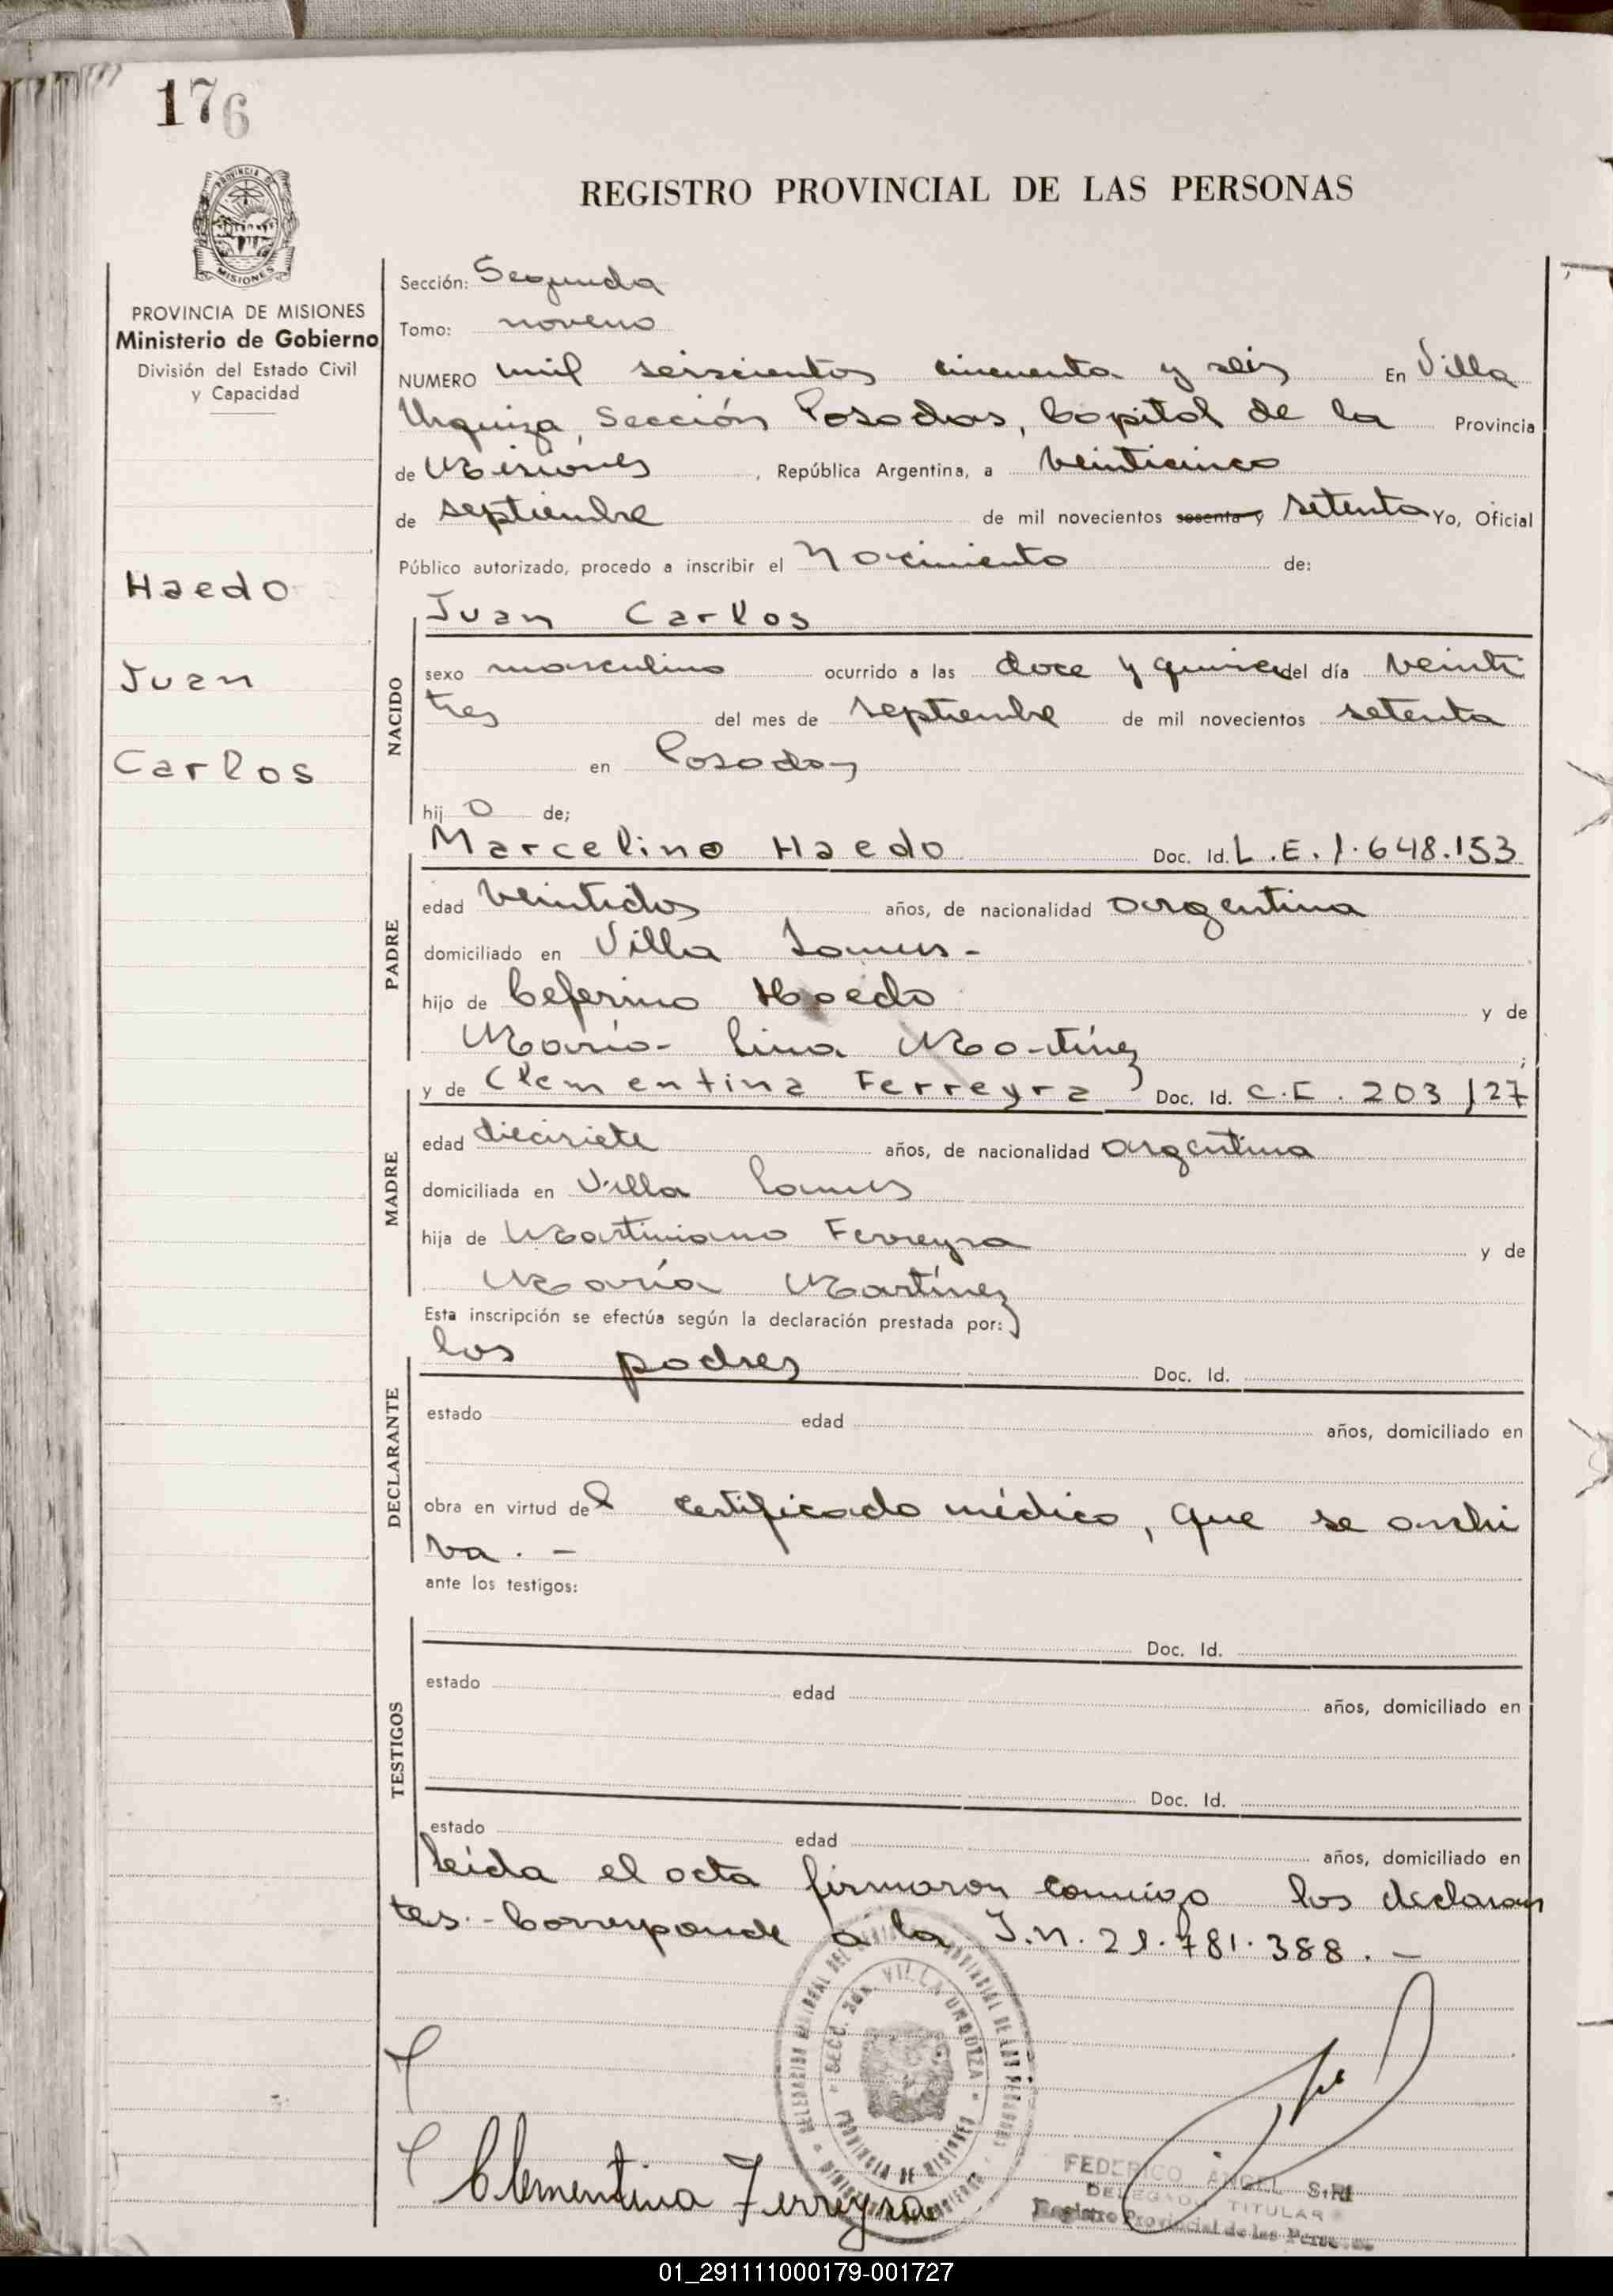 176
REGISTRO PROVINCIAL DE LAS PERSONAS
MISIONES
PROVINCIA DE MISIONES
Ministerio de Gobierno
División del Estado Civil
y Capacidad
Haedo
Juan
Carlos
Sección: Segunda
Tomo: noveno
NUMERO mil seiscientos cincuenta y seis En Villa
Urquiza, Sección Posadas, Capital de la Provincia
de Misiones, República Argentina, a veinticinco
de septiembre de mil novecientos sesenta y setenta Yo, Oficial
Público autorizado, procedo a inscribir el Nacimiento de:
NACIDO
Juan Carlos
sexo masculino ocurrido a las doce y quince del día veinti
tres del mes de septiembre de mil novecientos setenta
en Posadas
hijo de;
PADRE
Marcelino Haedo Doc. Id. L.E. 1.648.153
edad veintidos años, de nacionalidad argentina
domiciliado en Villa Lanus -
hijo de Ceferino Haedo y de
María Lina Martínez ;
MADRE
y de Clementina Ferreyra Doc. Id. C.E. 203127
edad diecisiete años, de nacionalidad argentina
domiciliada en Villa Lanus
hija de Martiniano Ferreyra y de
María Martínez
Esta inscripción se efectúa según la declaración prestada por:
DECLARANTE
los padres Doc. Id.
estado edad años, domiciliado en
obra en virtud del certificado médico, que se archi
va. -
ante los testigos:
TESTIGOS
Doc. Id.
estado edad años, domiciliado en
Doc. Id.
estado edad años, domiciliado en
leida el acta firmaron conmigo los declaran
tes. - Corresponde a la I.N. 21.781.388. -
SECC. 2da. VILLA URQUIZA
PROVINCIA DE MISIONES
Clementina Ferreyra
FEDERICO ANGEL
DELEGADO TITULAR
Registro Provincial de las Personas
01_291111000179-001727